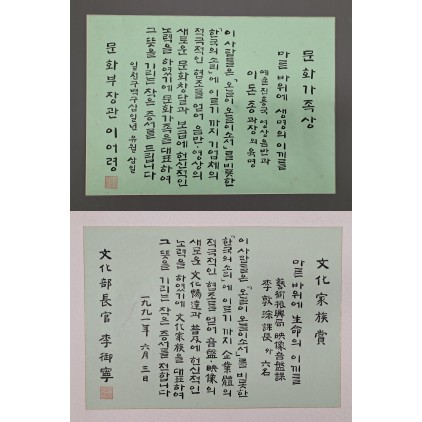 문화가족상
마른 바위에 생명의 이끼를
예술진흥국 영상음반과
이돈종 과장외 육명
이 사람들은 「오늘이 오늘이소서」를 비롯한
「한국의 소리」에 이르기까지 기업체의
적극적인 협조를 얻어 음반·영상의
새로운 문화창달과 보급에 헌신적인
노력을 하였기에 문화가족을 대표하여
그 뜻을 기리는 작은 증서를 드립니다
일천구백구십일년 유월 삼일
문화부장관 이어령
文化家族賞
마른 바위에 生命의 이끼를
藝術振興局 映像音盤課
李敦淙 課長 外 六名
이 사람들은 「오늘이 오늘이소서」를 비롯한
「한국의 소리」에 이르기까지 企業體의
적극적인 협조를 얻어 音盤·映像의
새로운 文化暢達과 普及에 헌신적인
노력을 하였기에 文化家族을 대표하여
그 뜻을 기리는 작은 증서를 전합니다
一九九一年 六月 三日
文化部長官 李御寧